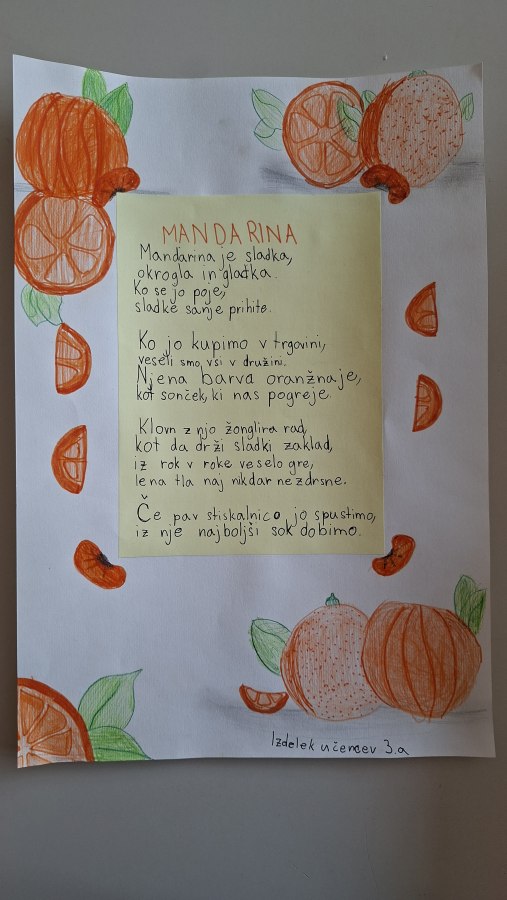 MANDARINA
Mandarina je sladka,
okrogla in gladka.
Ko se jo poje,
sladke sanje prihite.
Ko jo kupimo v trgovini,
veseli smo vsi v družini.
Njena barva oranžna je,
kot sonček, ki nas pogreje.
Klovn z njo žonglira rad,
kot da drži sladki zaklad,
iz rok v roke veselo gre,
le na tla naj nikdar ne zdrsne.
Če pav stiskalnico jo spustimo,
iz nje najboljši sok dobimo.
Izdelek učencev 3.a